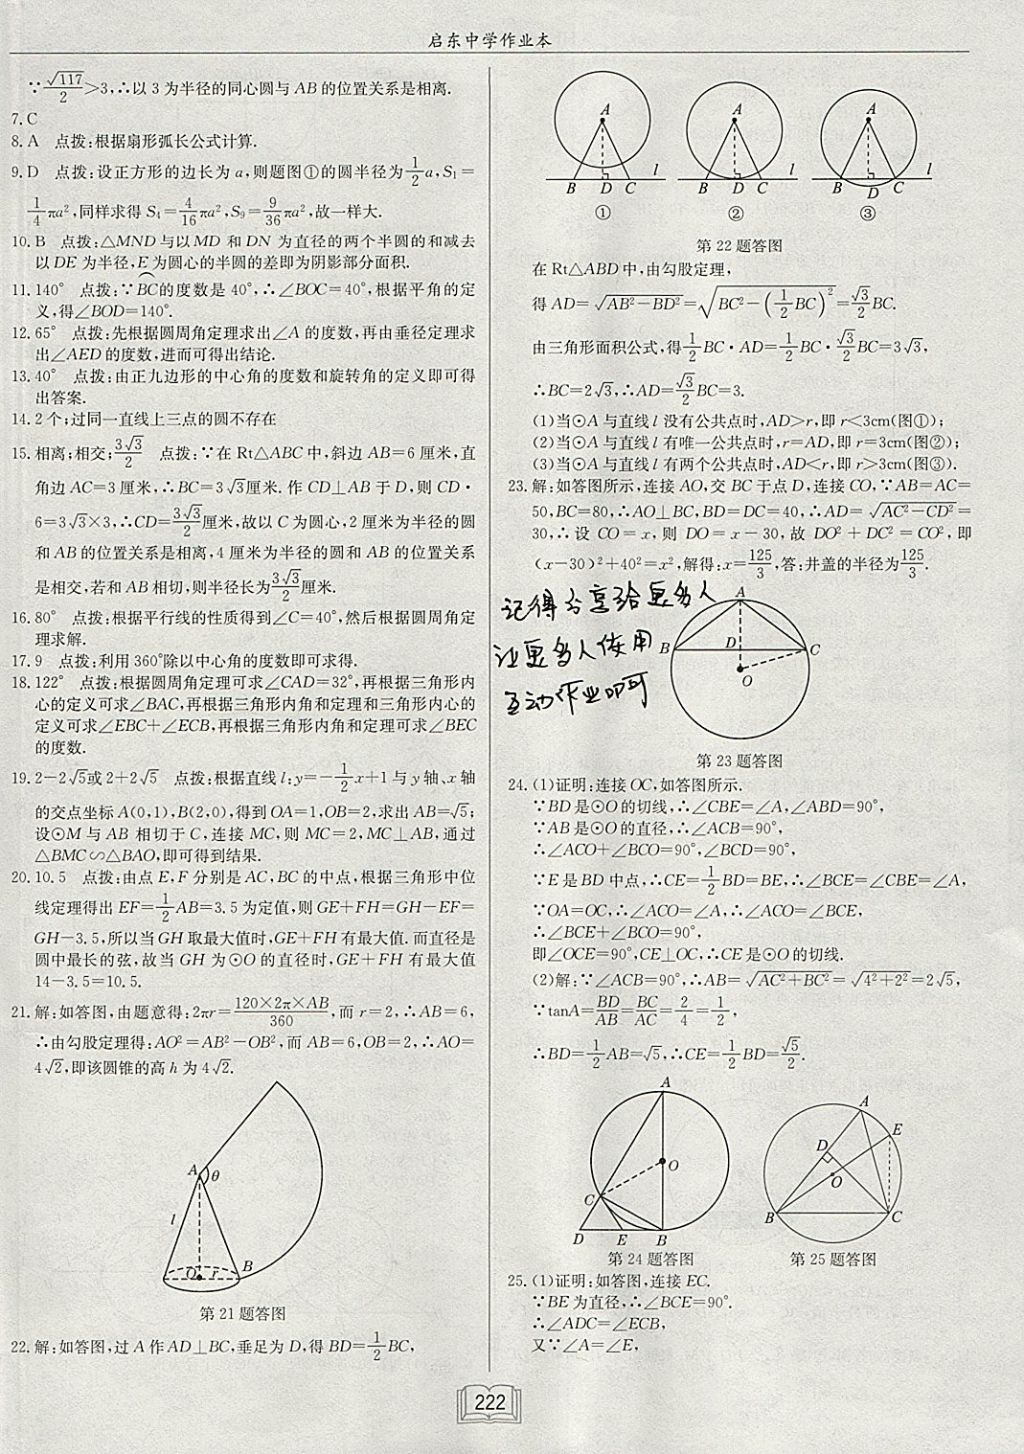 启东中学作业本
∵√117/2>3,∴以3为半径的同心圆与AB的位置关系是相离.
7.C
8.A 点拨:根据扇形弧长公式计算.
9.D 点拨:设正方形的边长为a,则题图①的圆半径为1/2a,S₁=
1/4πa²,同样求得S₄=4/16πa²,S₉=9/36πa²,故一样大.
10.B 点拨:△MND与以MD和DN为直径的两个半圆的和减去
以DE为半径,E为圆心的半圆的差即为阴影部分面积.
11.140° 点拨:∵BC⌒的度数是40°,∴∠BOC=40°,根据平角的定
义,得∠BOD=140°.
12.65° 点拨:先根据圆周角定理求出∠A的度数,再由垂径定理求
出∠AED的度数,进而可得出结论.
13.40° 点拨:由正九边形的中心角的度数和旋转角的定义即可得
出答案.
14.2个;过同一直线上三点的圆不存在
15.相离;相交;3√3/2 点拨:∵在Rt△ABC中,斜边AB=6厘米,直
角边AC=3厘米,∴BC=3√3厘米.作CD⊥AB于D,则CD·
6=3√3×3,∴CD=3√3/2厘米,故以C为圆心,2厘米为半径的圆
和AB的位置关系是相离,4厘米为半径的圆和AB的位置关系
是相交,若和AB相切,则半径长为3√3/2厘米.
16.80° 点拨:根据平行线的性质得到∠C=40°,然后根据圆周角定
理求解.
17.9 点拨:利用360°除以中心角的度数即可求得.
18.122° 点拨:根据圆周角定理可求∠CAD=32°,再根据三角形内
心的定义可求∠BAC,再根据三角形内角和定理和三角形内心的
定义可求∠EBC+∠ECB,再根据三角形内角和定理可求∠BEC
的度数.
19.2-2√5或2+2√5 点拨:根据直线l:y=-1/2x+1与y轴、x轴
的交点坐标A(0,1),B(2,0),得到OA=1,OB=2,求出AB=√5;
设⊙M与AB相切于C,连接MC,则MC=2,MC⊥AB,通过
△BMC∽△BAO,即可得到结果.
20.10.5 点拨:由点E,F分别是AC,BC的中点,根据三角形中位
线定理得出EF=1/2AB=3.5为定值,则GE+FH=GH-EF=
GH-3.5,所以当GH取最大值时,GE+FH有最大值.而直径是
圆中最长的弦,故当GH为⊙O的直径时,GE+FH有最大值
14-3.5=10.5.
21.解:如答图,由题意得:2πr=120×2π×AB/360,而r=2,∴AB=6,
∴由勾股定理得:AO²=AB²-OB²,而AB=6,OB=2,∴AO=
4√2,即该圆锥的高h为4√2.
A θ
l
O r B
第21题答图
22.解:如答图,过A作AD⊥BC,垂足为D,得BD=1/2BC,
A A A
B D C l B D C l B D C l
① ② ③
第22题答图
在Rt△ABD中,由勾股定理,
得AD=√(AB²-BD²)=√(BC²-(1/2BC)²)=√3/2BC.
由三角形面积公式,得1/2BC·AD=1/2BC·√3/2BC=3√3,
∴BC=2√3,∴AD=√3/2BC=3.
(1)当⊙A与直线l没有公共点时,AD>r,即r<3cm(图①);
(2)当⊙A与直线l有唯一公共点时,r=AD,即r=3cm(图②);
(3)当⊙A与直线l有两个公共点时,AD<r,即r>3cm(图③).
23.解:如答图所示,连接AO,交BC于点D,连接CO,∵AB=AC=
50,BC=80,∴AO⊥BC,BD=DC=40,∴AD=√(AC²-CD²)=
30,∴设CO=x,则DO=x-30,故DO²+DC²=CO²,即
(x-30)²+40²=x²,解得:x=125/3,答:井盖的半径为125/3.
记得分享给更多人
让更多人使用
互动作业即可
A
B D C
O
第23题答图
24.(1)证明:连接OC,如答图所示.
∵BD是⊙O的切线,∴∠CBE=∠A,∠ABD=90°,
∵AB是⊙O的直径,∴∠ACB=90°,
∴∠ACO+∠BCO=90°,∠BCD=90°,
∵E是BD中点,∴CE=1/2BD=BE,∴∠BCE=∠CBE=∠A,
∵OA=OC,∴∠ACO=∠A,∴∠ACO=∠BCE,
∴∠BCE+∠BCO=90°,
即∠OCE=90°,CE⊥OC,∴CE是⊙O的切线.
(2)解:∵∠ACB=90°,∴AB=√(AC²+BC²)=√(4²+2²)=2√5,
∵tanA=BD/AB=BC/AC=2/4=1/2,
∴BD=1/2AB=√5,∴CE=1/2BD=√5/2.
A
O
C
D E B
第24题答图
A
E
D
O
B C
第25题答图
25.(1)证明:如答图,连接EC.
∵BE为直径,∴∠BCE=90°.
∴∠ADC=∠ECB,
又∵∠A=∠E,
222